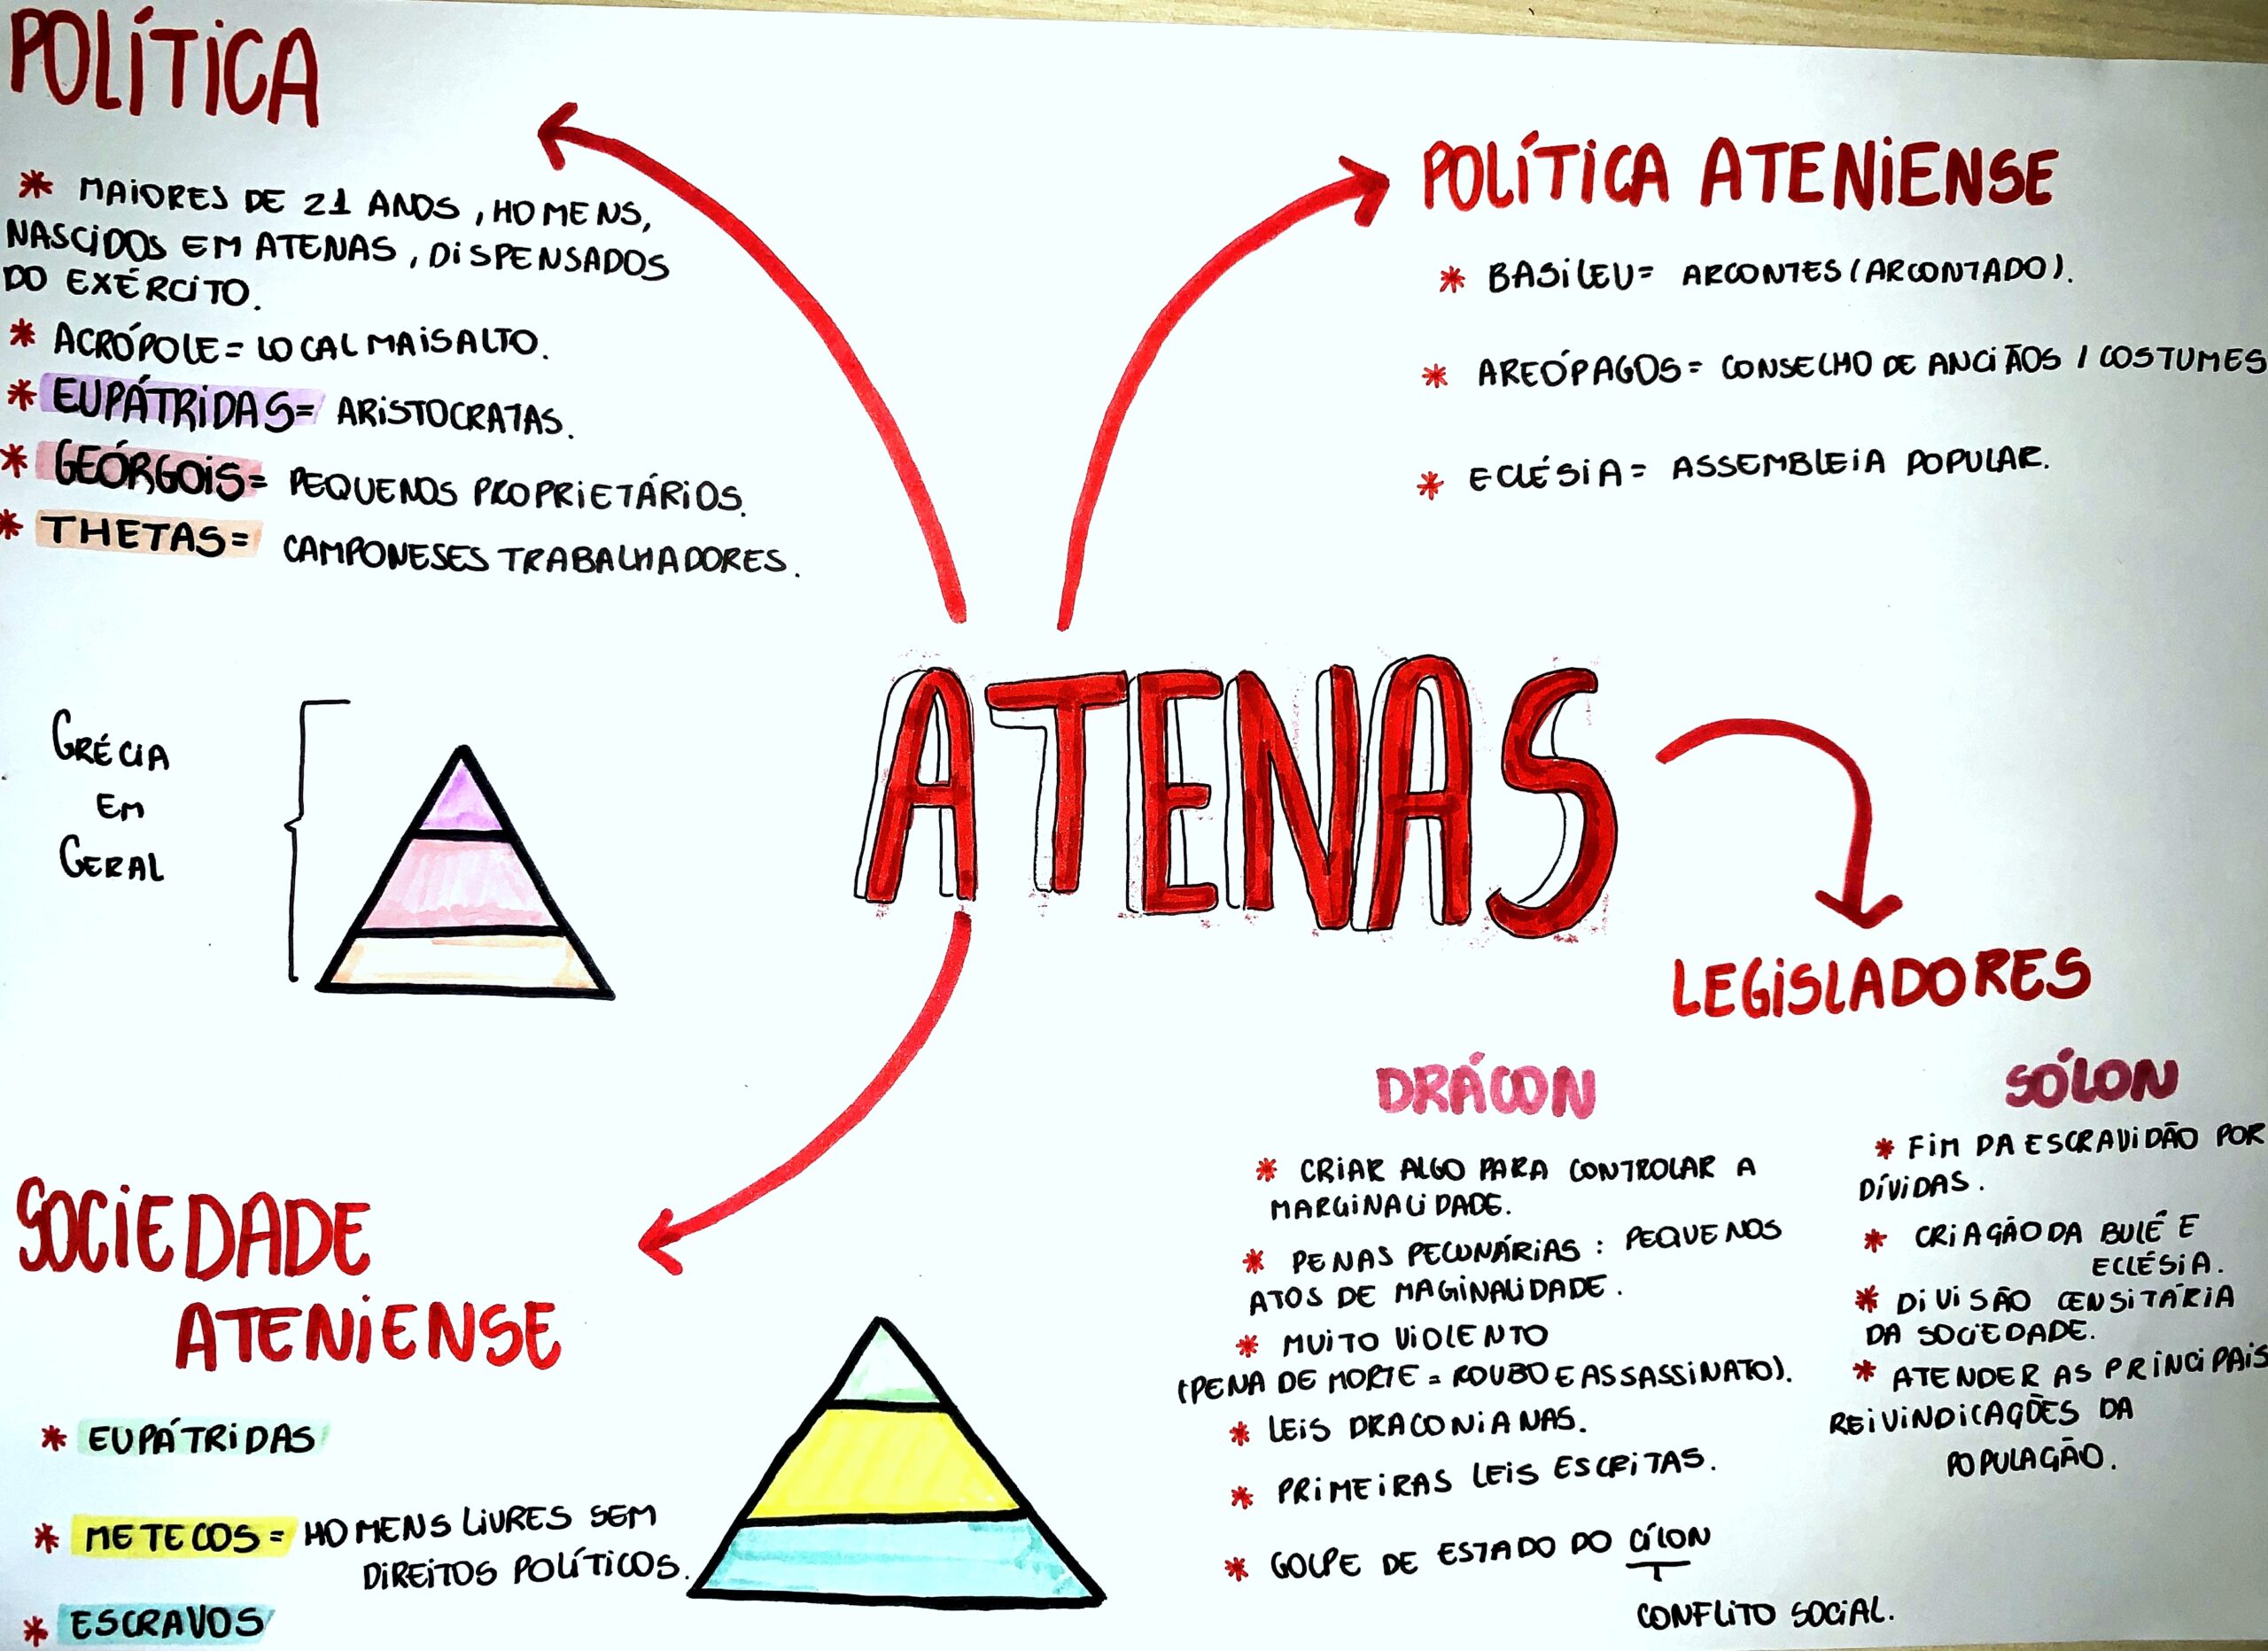 POLÍTICA
* MAIORES DE 21 ANOS, HOMENS,
NASCIDOS EM ATENAS, DISPENSADOS
DO EXÉRCITO.
* ACRÓPOLE = LOCAL MAIS ALTO.
* EUPÁTRIDAS = ARISTOCRATAS.
* GEÓRGOIS = PEQUENOS PROPRIETÁRIOS.
* THETAS = CAMPONESES TRABALHADORES.
POLÍTICA ATENIENSE
* BASILEU = ARCONTES (ARCONTADO).
* AREÓPAGOS = CONSELHO DE ANCIÃOS / COSTUMES
* ECLÉSIA = ASSEMBLEIA POPULAR.
GRÉCIA
EM
GERAL
ATENAS
LEGISLADORES
DRÁCON
* CRIAR ALGO PARA CONTROLAR A
MARGINALIDADE.
* PENAS PECUNÁRIAS : PEQUENOS
ATOS DE MAGINALIDADE.
* MUITO VIOLENTO
(PENA DE MORTE = ROUBO E ASSASSINATO).
* LEIS DRACONIANAS.
* PRIMEIRAS LEIS ESCRITAS.
* GOLPE DE ESTADO DO CÍLON
CONFLITO SOCIAL.
SÓLON
* FIM DA ESCRAVIDÃO POR
DÍVIDAS.
* CRIAÇÃO DA BULÉ E
ECLÉSIA.
* DIVISÃO CENSITÁRIA
DA SOCIEDADE.
* ATENDER AS PRINCIPAIS
REIVINDICAÇÕES DA
POPULAÇÃO.
SOCIEDADE
ATENIENSE
* EUPÁTRIDAS
* METECOS = HOMENS LIVRES SEM
DIREITOS POLÍTICOS.
* ESCRAVOS